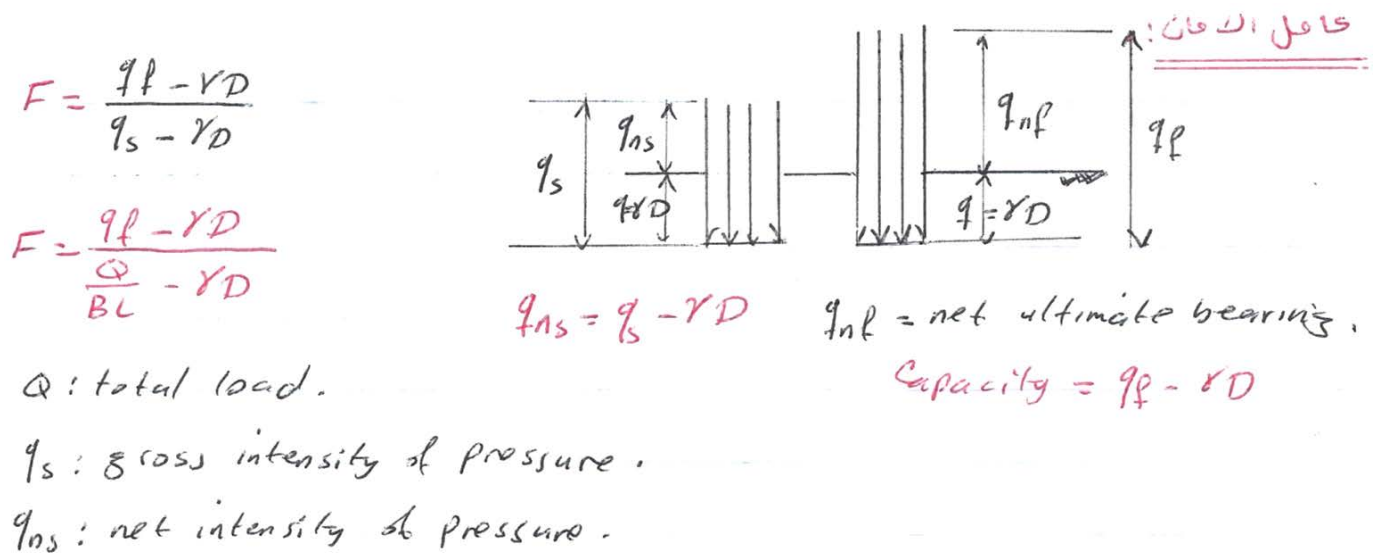 عامل الامان:
F = (qf - γD) / (qs - γD)
F = (qf - γD) / (Q/BL - γD)
qs
qns
q=γD
qnf
q=γD
qf
qns = qs - γD
qnf = net ultimate bearing.
Capacity = qf - γD
Q: total load.
qs: gross intensity of pressure.
qns: net intensity of pressure.